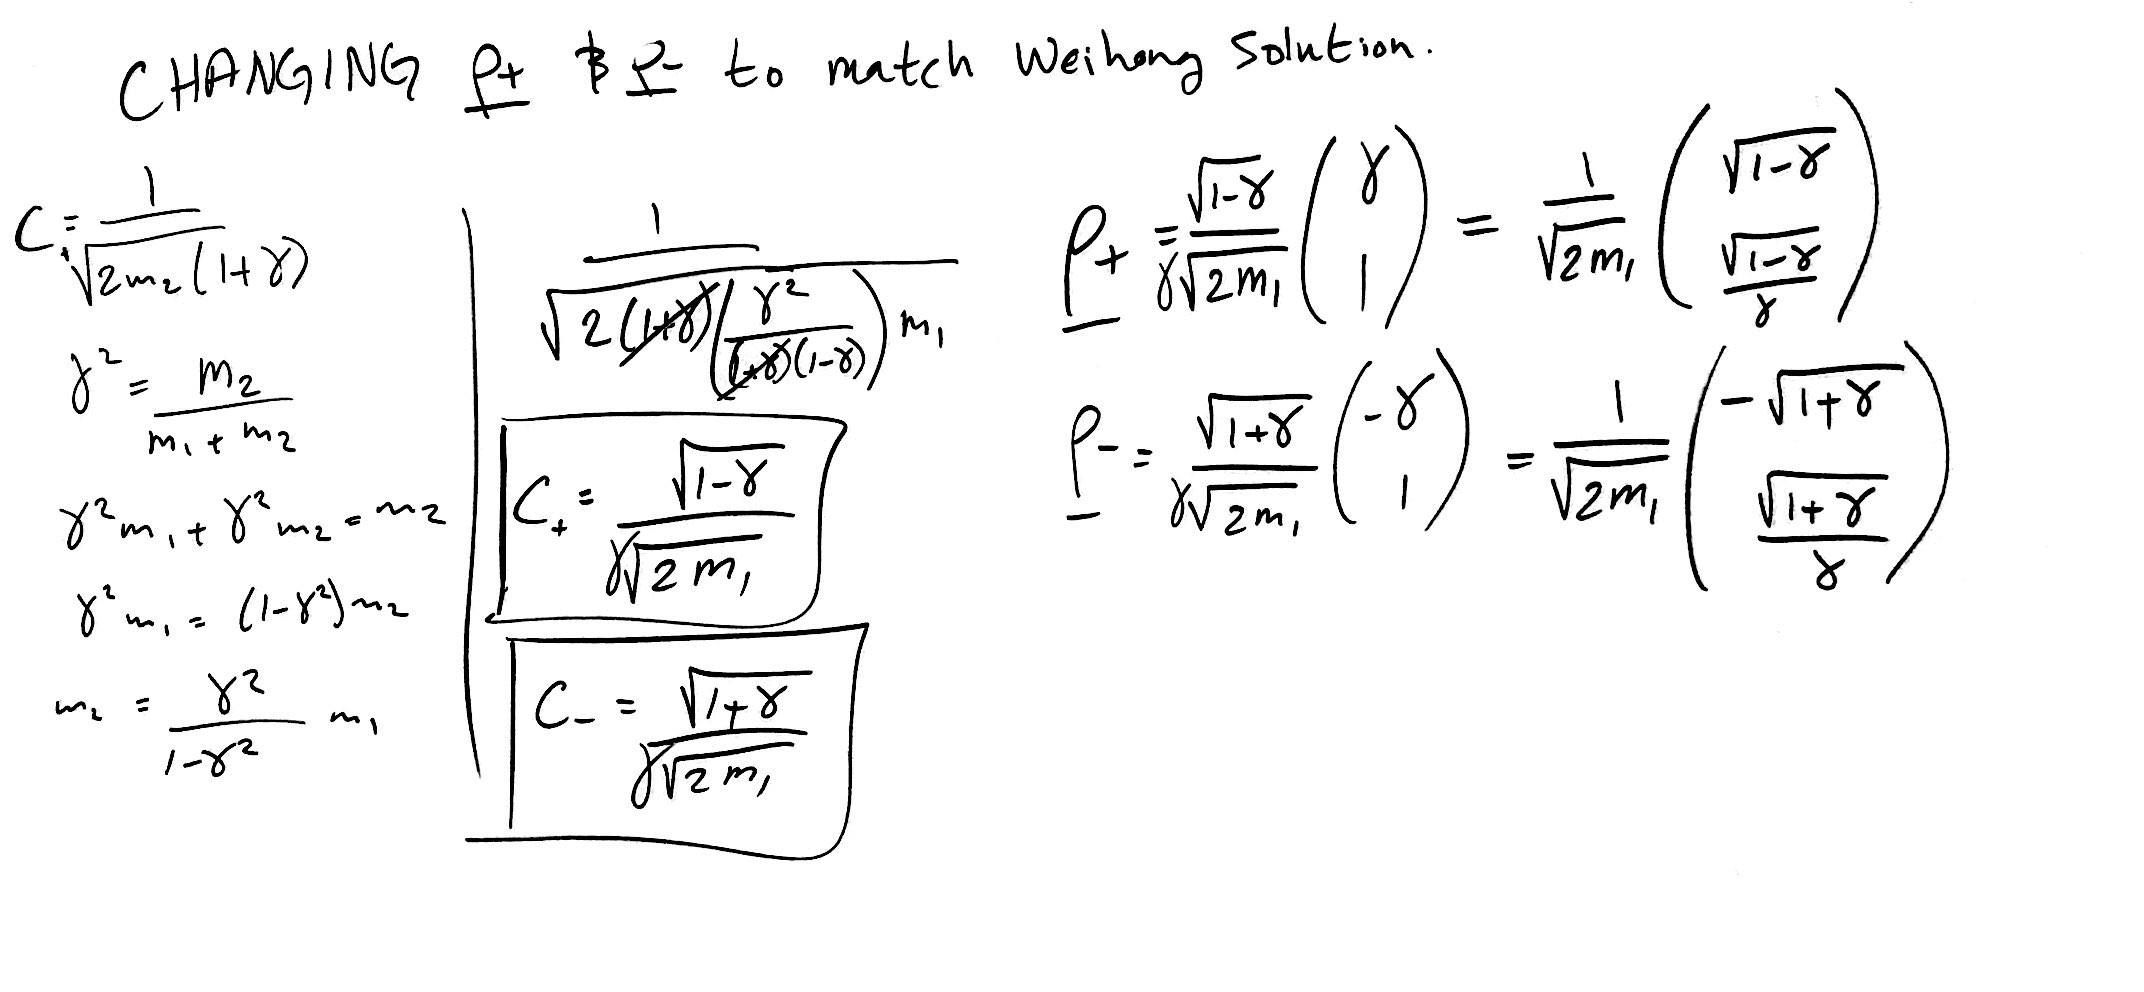 CHANGING ρ+ & ρ- to match Weihong Solution.
C+ = 1 / √(2m₂(1+γ))
γ² = m₂ / (m₁ + m₂)
γ²m₁ + γ²m₂ = m₂
γ²m₁ = (1-γ²)m₂
m₂ = γ² / (1-γ²) m₁
1 / √(2(1+γ)(γ² / ((1+γ)(1-γ))) m₁)
C+ = √(1-γ) / (γ√(2m₁))
C- = √(1+γ) / (γ√(2m₁))
ρ+ = √(1-γ) / (γ√(2m₁)) (γ, 1) = 1 / √(2m₁) (√(1-γ), √(1-γ) / γ)
ρ- = √(1+γ) / (γ√(2m₁)) (-γ, 1) = 1 / √(2m₁) (-√(1+γ), √(1+γ) / γ)